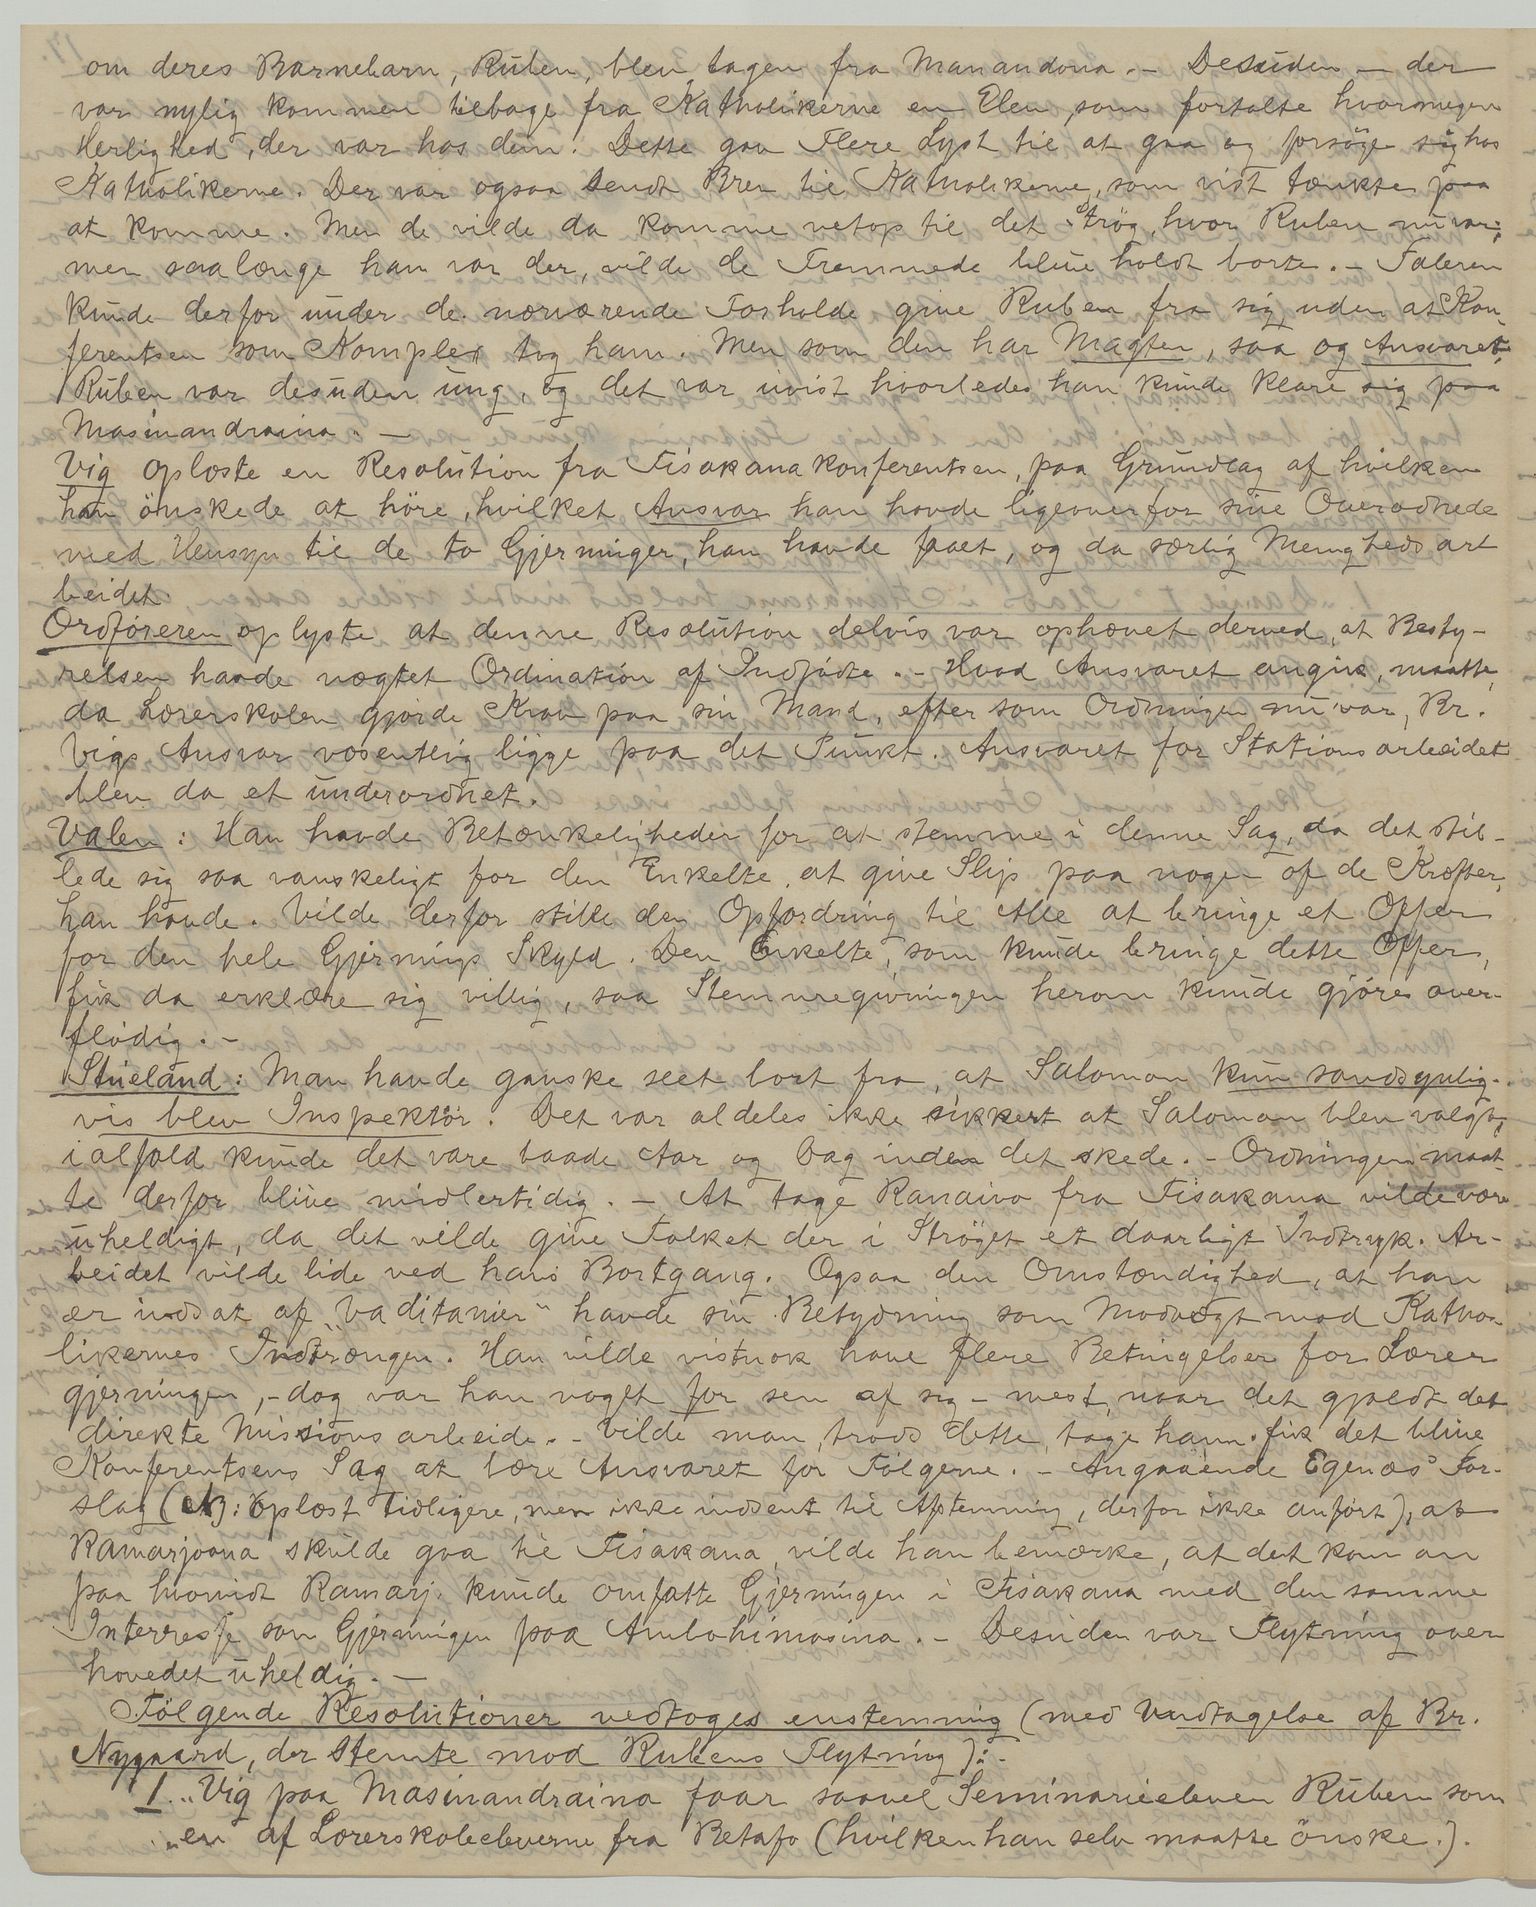 om deres Barnebarn, Ruben, blev tagen fra Manandona. – Desuden – der
var nylig kommen tilbage fra Katholikerne en Elev, som fortalte hvormegen
Herlighed, der var hos dem! Dette gav Flere Lyst til at gaa og forsöge sig hos
Katholikerne. Der var ogsaa sendt Brev til Katholikerne, som vist tænkte paa
at komme. Men de vilde da komme netop til det Strög, hvor Ruben nu var;
men saalænge han var der, vilde de Fremmede blive holdt borte. – Taleren
kunde derfor under de nærværende Forholde give Ruben fra sig, uden at Kon-
ferentsen som Komplex tog ham. Men som den har Magten, saa og Ansvaret.
Ruben var desuden ung, og det var uvist hvorledes han kunde klare sig paa
Masinandraina. –
Vig oplæste en Resolution fra Fisakanakonferentsen, paa Grundlag af hvilken
han önskede at höre, hvilket Ansvar han havde ligeoverfor sine Overordnede
med Hensyn til de to Gjerninger, han havde faaet, og da særlig Menighedsar
beidet.
Ordföreren oplyste at denne Resolution delvis var ophævet derved, at Besty-
relsen havde nægtet Ordination af Indfödte. – Hvad Ansvaret angik, maatte,
da Lærerskolen gjorde Krav paa sin Mand, eftersom Ordningen nu var, Br.
Vigs Ansvar væsentlig ligge paa det Punkt. Ansvaret for Stationsarbeidet
blev da et underordnet.
Valen: Han havde Betænkeligheder for at stemme i denne Sag, da det stil-
lede sig saa vanskeligt for den Enkelte, at give Slip paa nogen af de Kræfter,
han havde. Vilde derfor stille den Opfordring til Alle at bringe et Offer
for den hele Gjernings Skyld. Den Enkelte, som kunde bringe dette Offer,
fik da erklære sig villig, saa Stemmegivningen herom kunde gjöres over-
flödig. –
Stueland: Man havde ganske seet bort fra, at Salomon kun sandsynlig-
vis blev Inspektör. Det var aldeles ikke sikkert at Salomon blev valgt,
ialfald kunde det vare baade Aar og Dag inden det skede. – Ordningen maat-
te derfor blive midlertidig. – At tage Ranaivo fra Fisakana vilde være
uheldigt, da det vilde give Folket der i Ströget et daarligt Indtryk. Ar-
beidet vilde lide ved hans Bortgang. Ogsaa den Omstændighed, at han
er indsat af „Vaditanier“ havde sin Betydning som Modvægt mod Katho-
likernes Indtrængen. Han vilde vistnok have flere Betingelser for Lærer
gjerningen, – dog var han noget for sen af sig – mest, naar det gjaldt det
direkte Missionsarbeide. – Vilde man, trods dette, tage ham, fik det blive
Konferentsens Sag at bære Ansvaret for Fölgerne. – Angaaende Egenæs' For-
slag (NB: Oplæst tidligere, men ikke indsent til Afstemning, derfor ikke anfört), at
Ramarjoana skulde gaa til Fisakana, vilde han bemærke, at det kom an
paa hvorvidt Ramarj. kunde omfatte Gjerningen i Fisakana med den samme
Interresse som Gjerningen paa Ambohimasina. – Desuden var Flytning over
hovedet uheldig. –
Fölgende Resolutioner vedtoges enstemmig (med Undtagelse af Br.
Nygaard, der stemte mod Rubens Flytning): –
1. „Vig paa Masinandraina faar saavel Seminarieeleven Ruben som
„en af Lærerskoleeleverne fra Betafo (hvilken han selv maatte önske.).